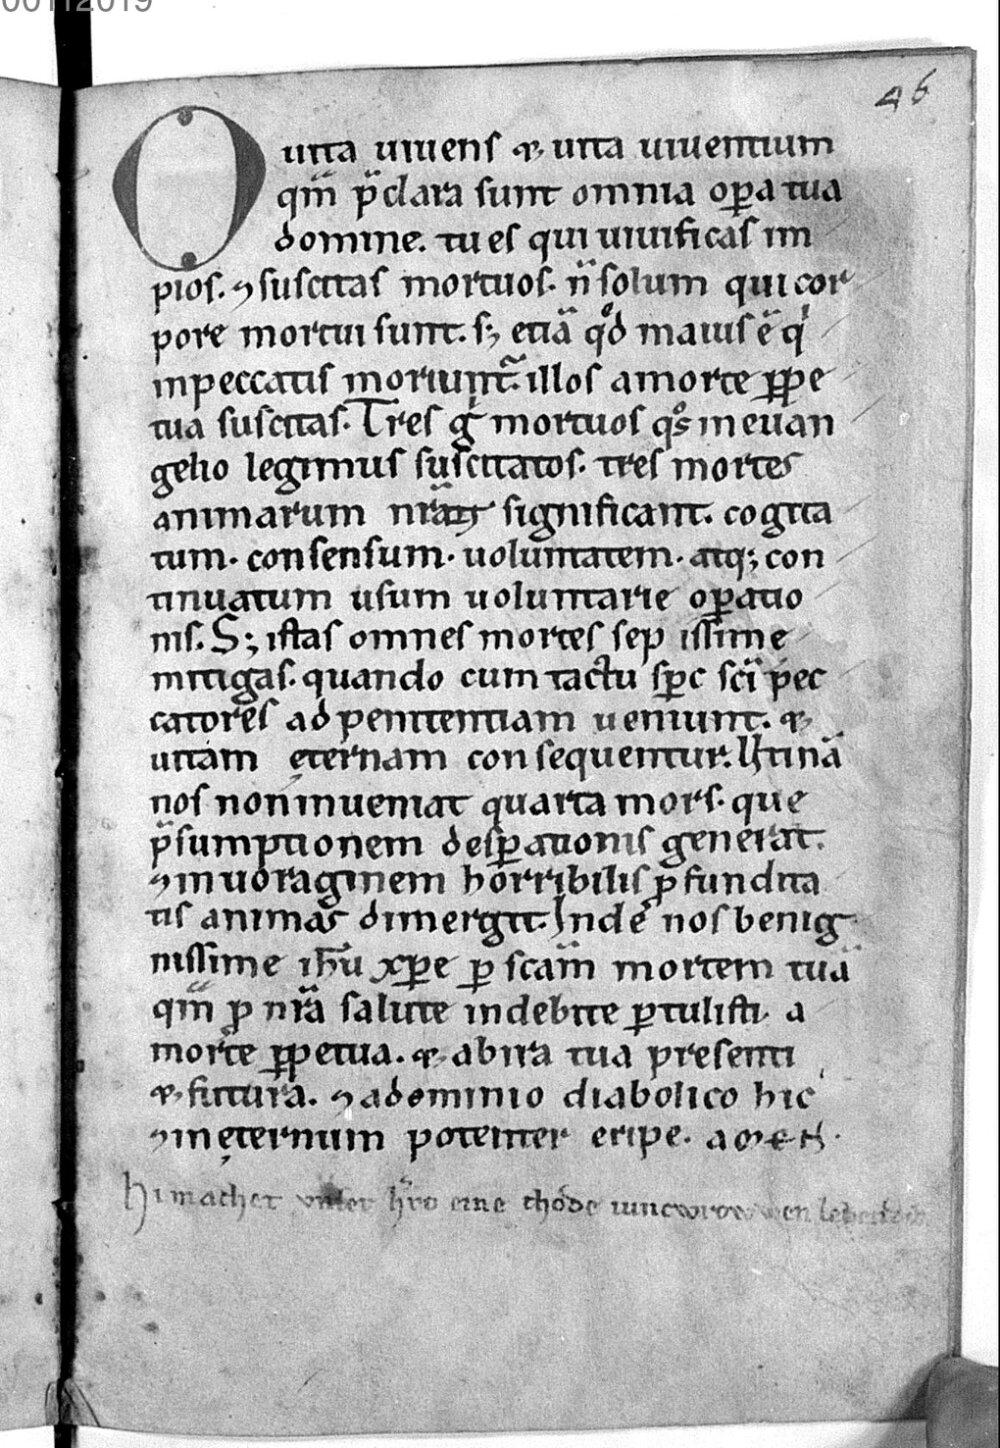 00112019
46
O uita uiuens ⁊ uita uiuentium
qm̄ p̄clara sunt omnia oꝑa tua
domine. tu es qui uiuificas im
pios. ⁊ suscitas mortuos. n̄ solum qui cor
pore mortui sunt. sꝫ etiā qͦd maius ē qͥ
in peccatis moriunt᷑. illos a morte ꝑpe
tua suscitas. Tres gͥ mortuos qͦs in euan
gelio legimus suscitatos. tres mortes
animarum nr̄aꝝ significant. cogita
tum. consensum. uoluntatem. atq; con
tinuatum usum uoluntarie oꝑatio
nis. S; istas omnes mortes sep issime
mitigas. quando cum tactu sp̄c sc̄i pec
catores ad penitentiam ueniunt. ⁊
uitam ęternam consequentur. Ut inā
nos non inueniat quarta mors. que
p̄sumptionem desꝑationis generat.
⁊ in uoraginem horribilis ꝓfundita
tis animas dimergit. Inde nos benig
nissime ih̄u xp̄e ꝑ sc̄am mortem tuā
qm̄ ꝓ nr̄a salute indebite ꝑtulisti. a
morte ꝑpetua. ⁊ ab ira tua presenti
⁊ futura. ⁊ a dominio diabolico hic
⁊ in ęternum potenter eripe. amen.
Hi machet unser h̄ro eine thode iuncvrowen lebendic